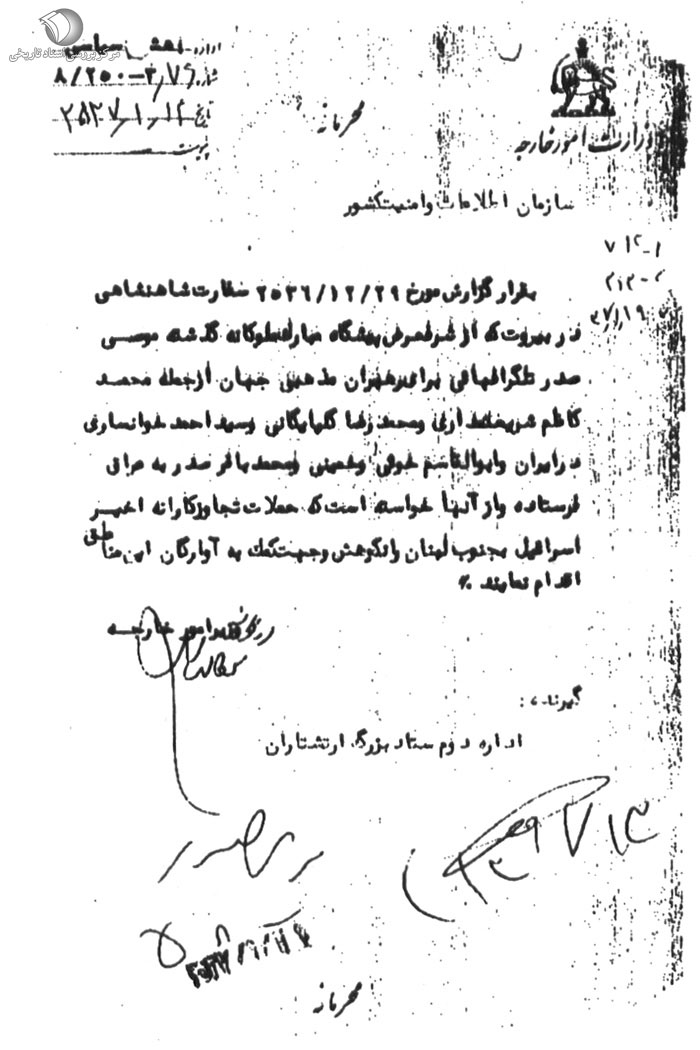 مرکز بررسی اسناد تاریخی
اداره نهم سیاسی
شماره
تاریخ
پیوست
محرمانه
وزارت امور خارجه
سازمان اطلاعات و امنیت کشور
بقرار گزارش مورخ ۲۵۳۶/۱۲/۲۹ سفارت شاهنشاهی
در بیروت که از شرفعرض پیشگاه مبارک ملوکانه گذشته موسی
صدر تلگرافهائی برای رهبران مذهبی جهان از جمله محمد
کاظم شریعتمداری و محمد رضا گلپایگانی و سید احمد خوانساری
در ایران و ابوالقاسم خوئی و خمینی و محمد باقر صدر به عراق
فرستاده و از آنها خواسته است که حملات تجاوزکارانه اخیر
اسرائیل بجنوب لبنان را نکوهش و جهت کمک به آوارگان این مناطق
اقدام نمایند ٪
امور خارجه
گیرنده :
اداره دوم ستاد بزرگ ارتشتاران
محرمانه